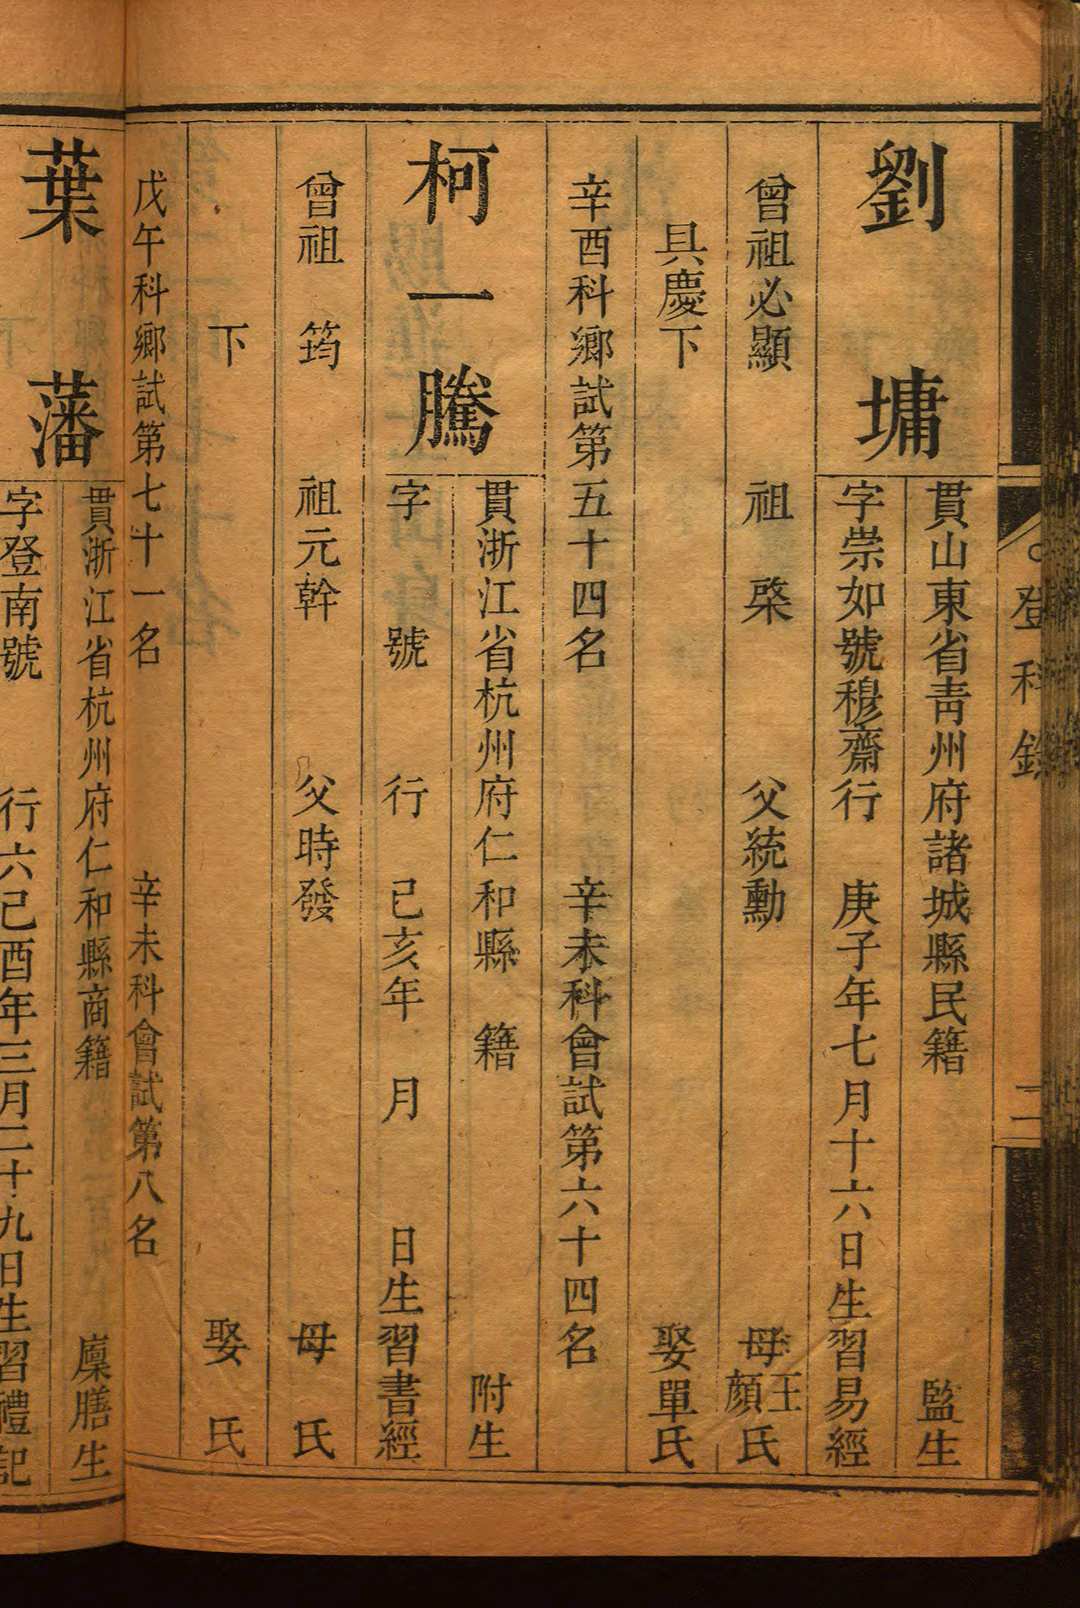 登科錄 二
劉墉
貫山東省靑州府諸城縣民籍 監生
字崇如號穆齋行 庚子年七月十六日生習易經
曾祖必顯 祖棨 父統勳 母王顏氏
具慶下 娶單氏
辛酉科鄉試第五十四名 辛未科會試第六十四名
柯一騰
貫浙江省杭州府仁和縣 籍 附生
字 號 行 己亥年 月 日生習書經
曾祖筠 祖元幹 父時發 母 氏
下 娶 氏
戊午科鄉試第七十一名 辛未科會試第八名
葉藩
貫浙江省杭州府仁和縣商籍 廩膳生
字登南號 行六己酉年三月二十九日生習禮記